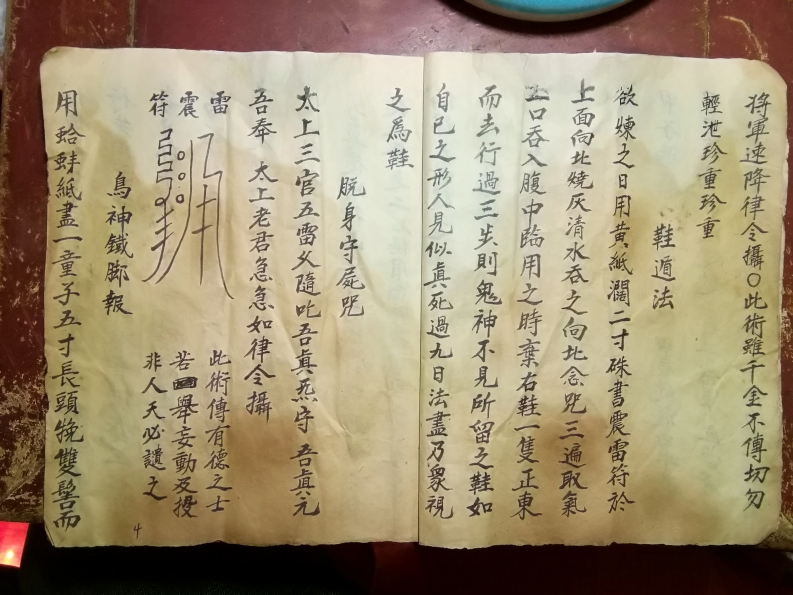 將軍速降律令攝〇此術雖千金不傳切勿
輕泄珍重珍重
鞋遁法
欲煉之日用黃紙濶二寸硃書震雷符於
上面向北燒灰清水吞之向北念咒三遍取氣
口吞入腹中臨用之時棄右鞋一隻正東
而去行過三步則鬼神不見所留之鞋如
自己之形人見似真死過九日法盡乃衆視
之為鞋
脫身守屍咒
太上三官五雷火隨叱吾真炁守吾真元
吾奉太上老君急急如律令攝
雷
震
符
此術傳有德之士
若舉妄動及授
非人天必譴之
烏神鐵脚報
用蛤蚌紙畫一童子五寸長頭挽雙髻而
4